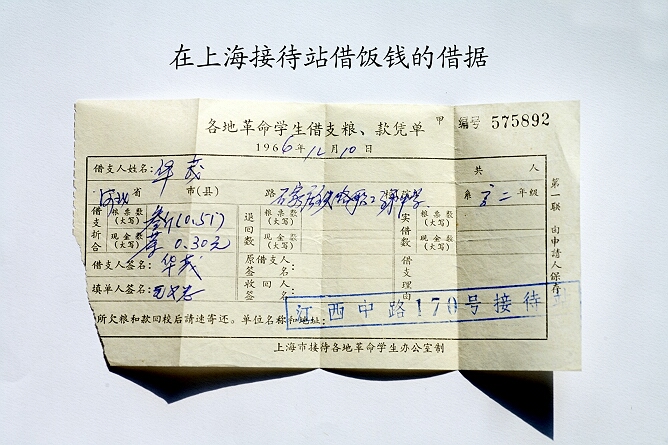 在上海接待站借饭钱的借据
各地革命学生借支粮、款凭单 甲 编号 575892
1966年12月10日
借支人姓名: 华茂 共 人
河北省 市(县) 路 石家庄铁路职工 中学 系 高二年级
借支折合 粮票数(大写) (0.5斤) 退回数 实借数 粮票数(大写)
现金数(大写) 0.30元 现金数(大写)
借支人签名: 华茂 原借支人签名: 借支理由
填单人签名: 收回人签名:
江西中路170号接待站
所欠粮和款回校后请速寄还。单位名称和地址:
上海市接待各地革命学生办公室制
第一联 由申請人保存